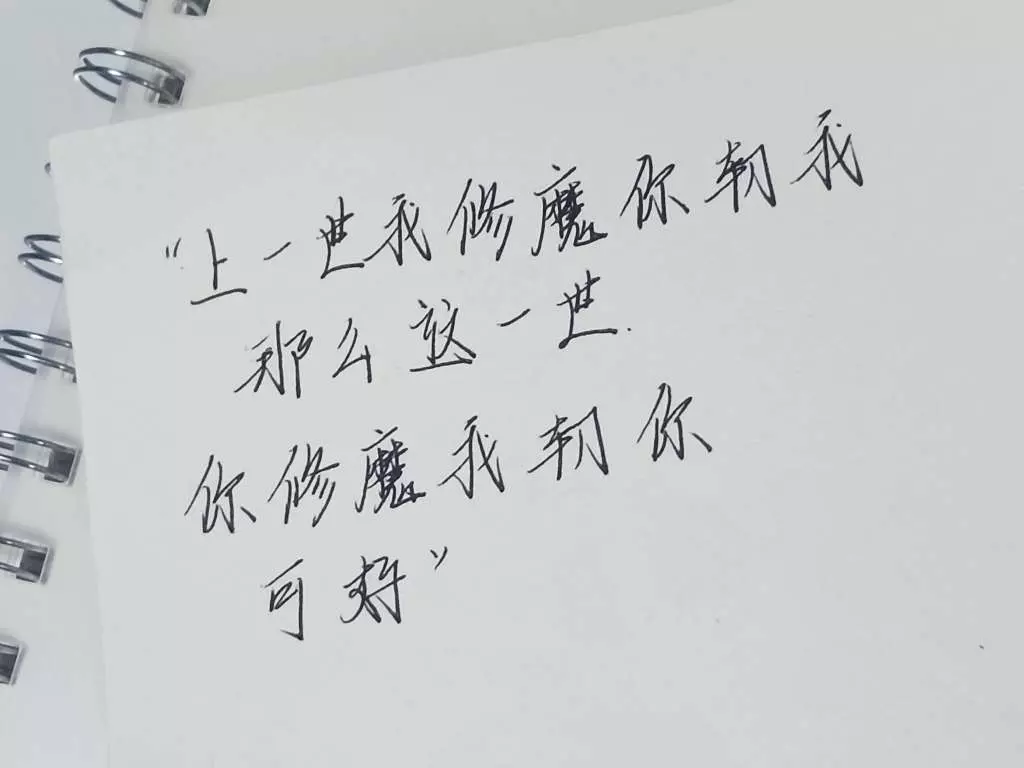 “上一世我修魔你朝我
那么这一世
你修魔我朝你
可好”